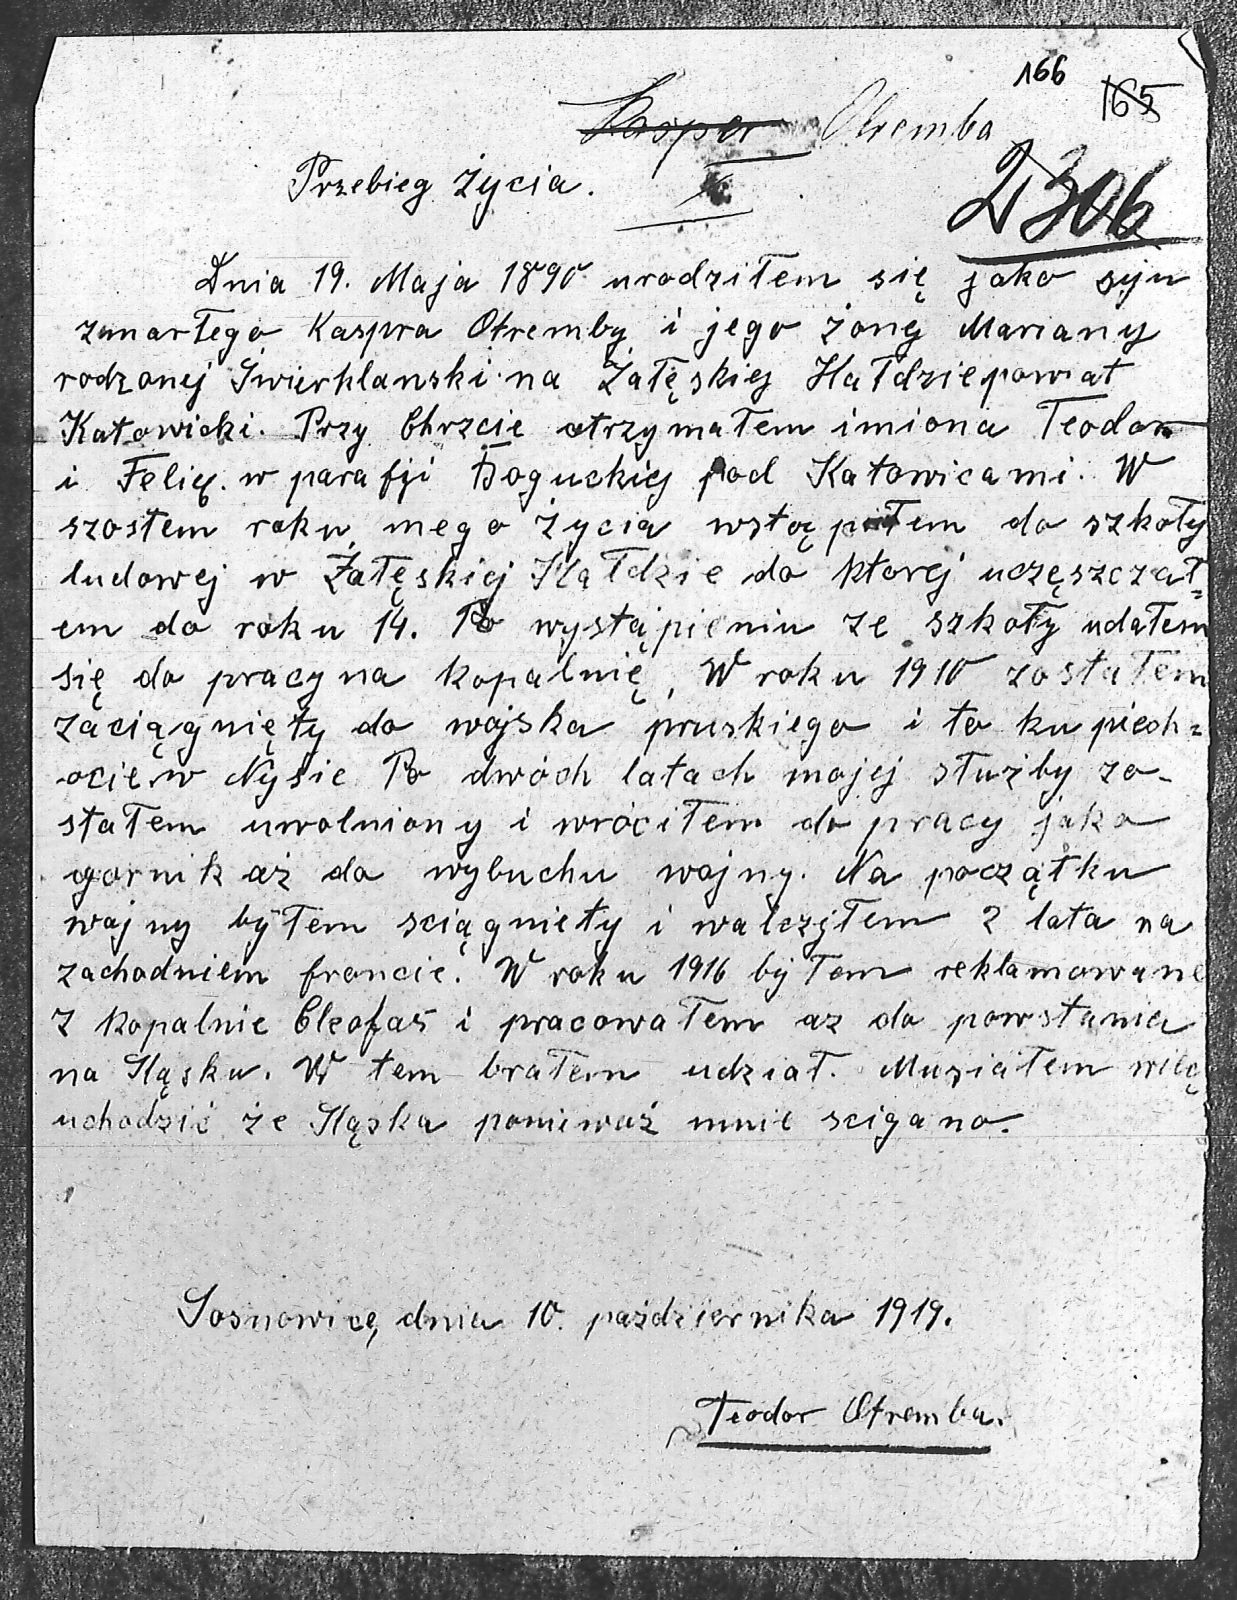 166 165
Kasper Otremba
Przebieg życia.
2306
Dnia 19. Maja 1890 urodziłem się jako syn
zmarłego Kaspra Otremby i jego żony Mariany
rodzonej Świerklanski na Załęskiej Hałdzie powiat
Katowicki. Przy Chrzcie otrzymałem imiona Teodor
i Felix. w parafji Boguckiej pod Katowicami. W
szostem roku mego życia wstąpiłem do szkoły
ludowej w Załęskiej Hałdzie do ktorej uczęszczał=
em do roku 14. Po wystąpieniu ze szkoły udałem
się do pracy na kopalnię, W roku 1910 zostałem
zaciągnięty do wojska pruskiego i to ku piech=
ocie w Nysie Po dwóch latach mojej służby zo-
stałem uwolniony i wróciłem do pracy jako
gornik aż do wybuchu wojny. Na początku
wojny byłem sciągnięty i walczyłem 2 lata na
zachodniem froncie. W roku 1916 byłem reklamowane
z kopalnie Cleofas i pracowałem az do powstania
na Sląsku. W tem brałem udział. Musiałem więc
uchodzić że Sląska ponieważ mnie scigano.
Sosnowice, dnia 10. październrika 1919.
Teodor Otremba.